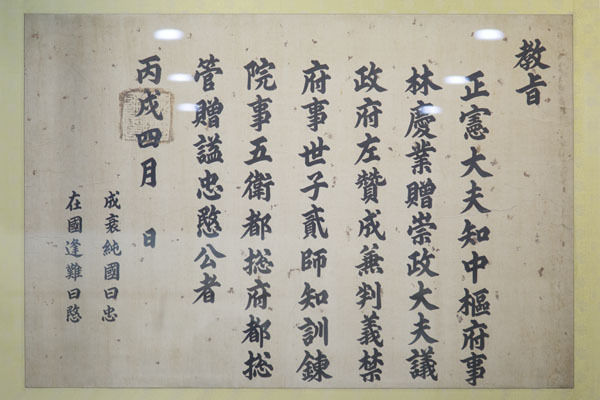 教旨
正憲大夫知中樞府事
林慶業贈崇政大夫議
政府左贊成兼判義禁
府事世子貳師知訓鍊
院事五衛都捴府都捴
管贈謚忠愍公者
丙戌四月 日
成衰純國曰忠
在國逢難曰愍